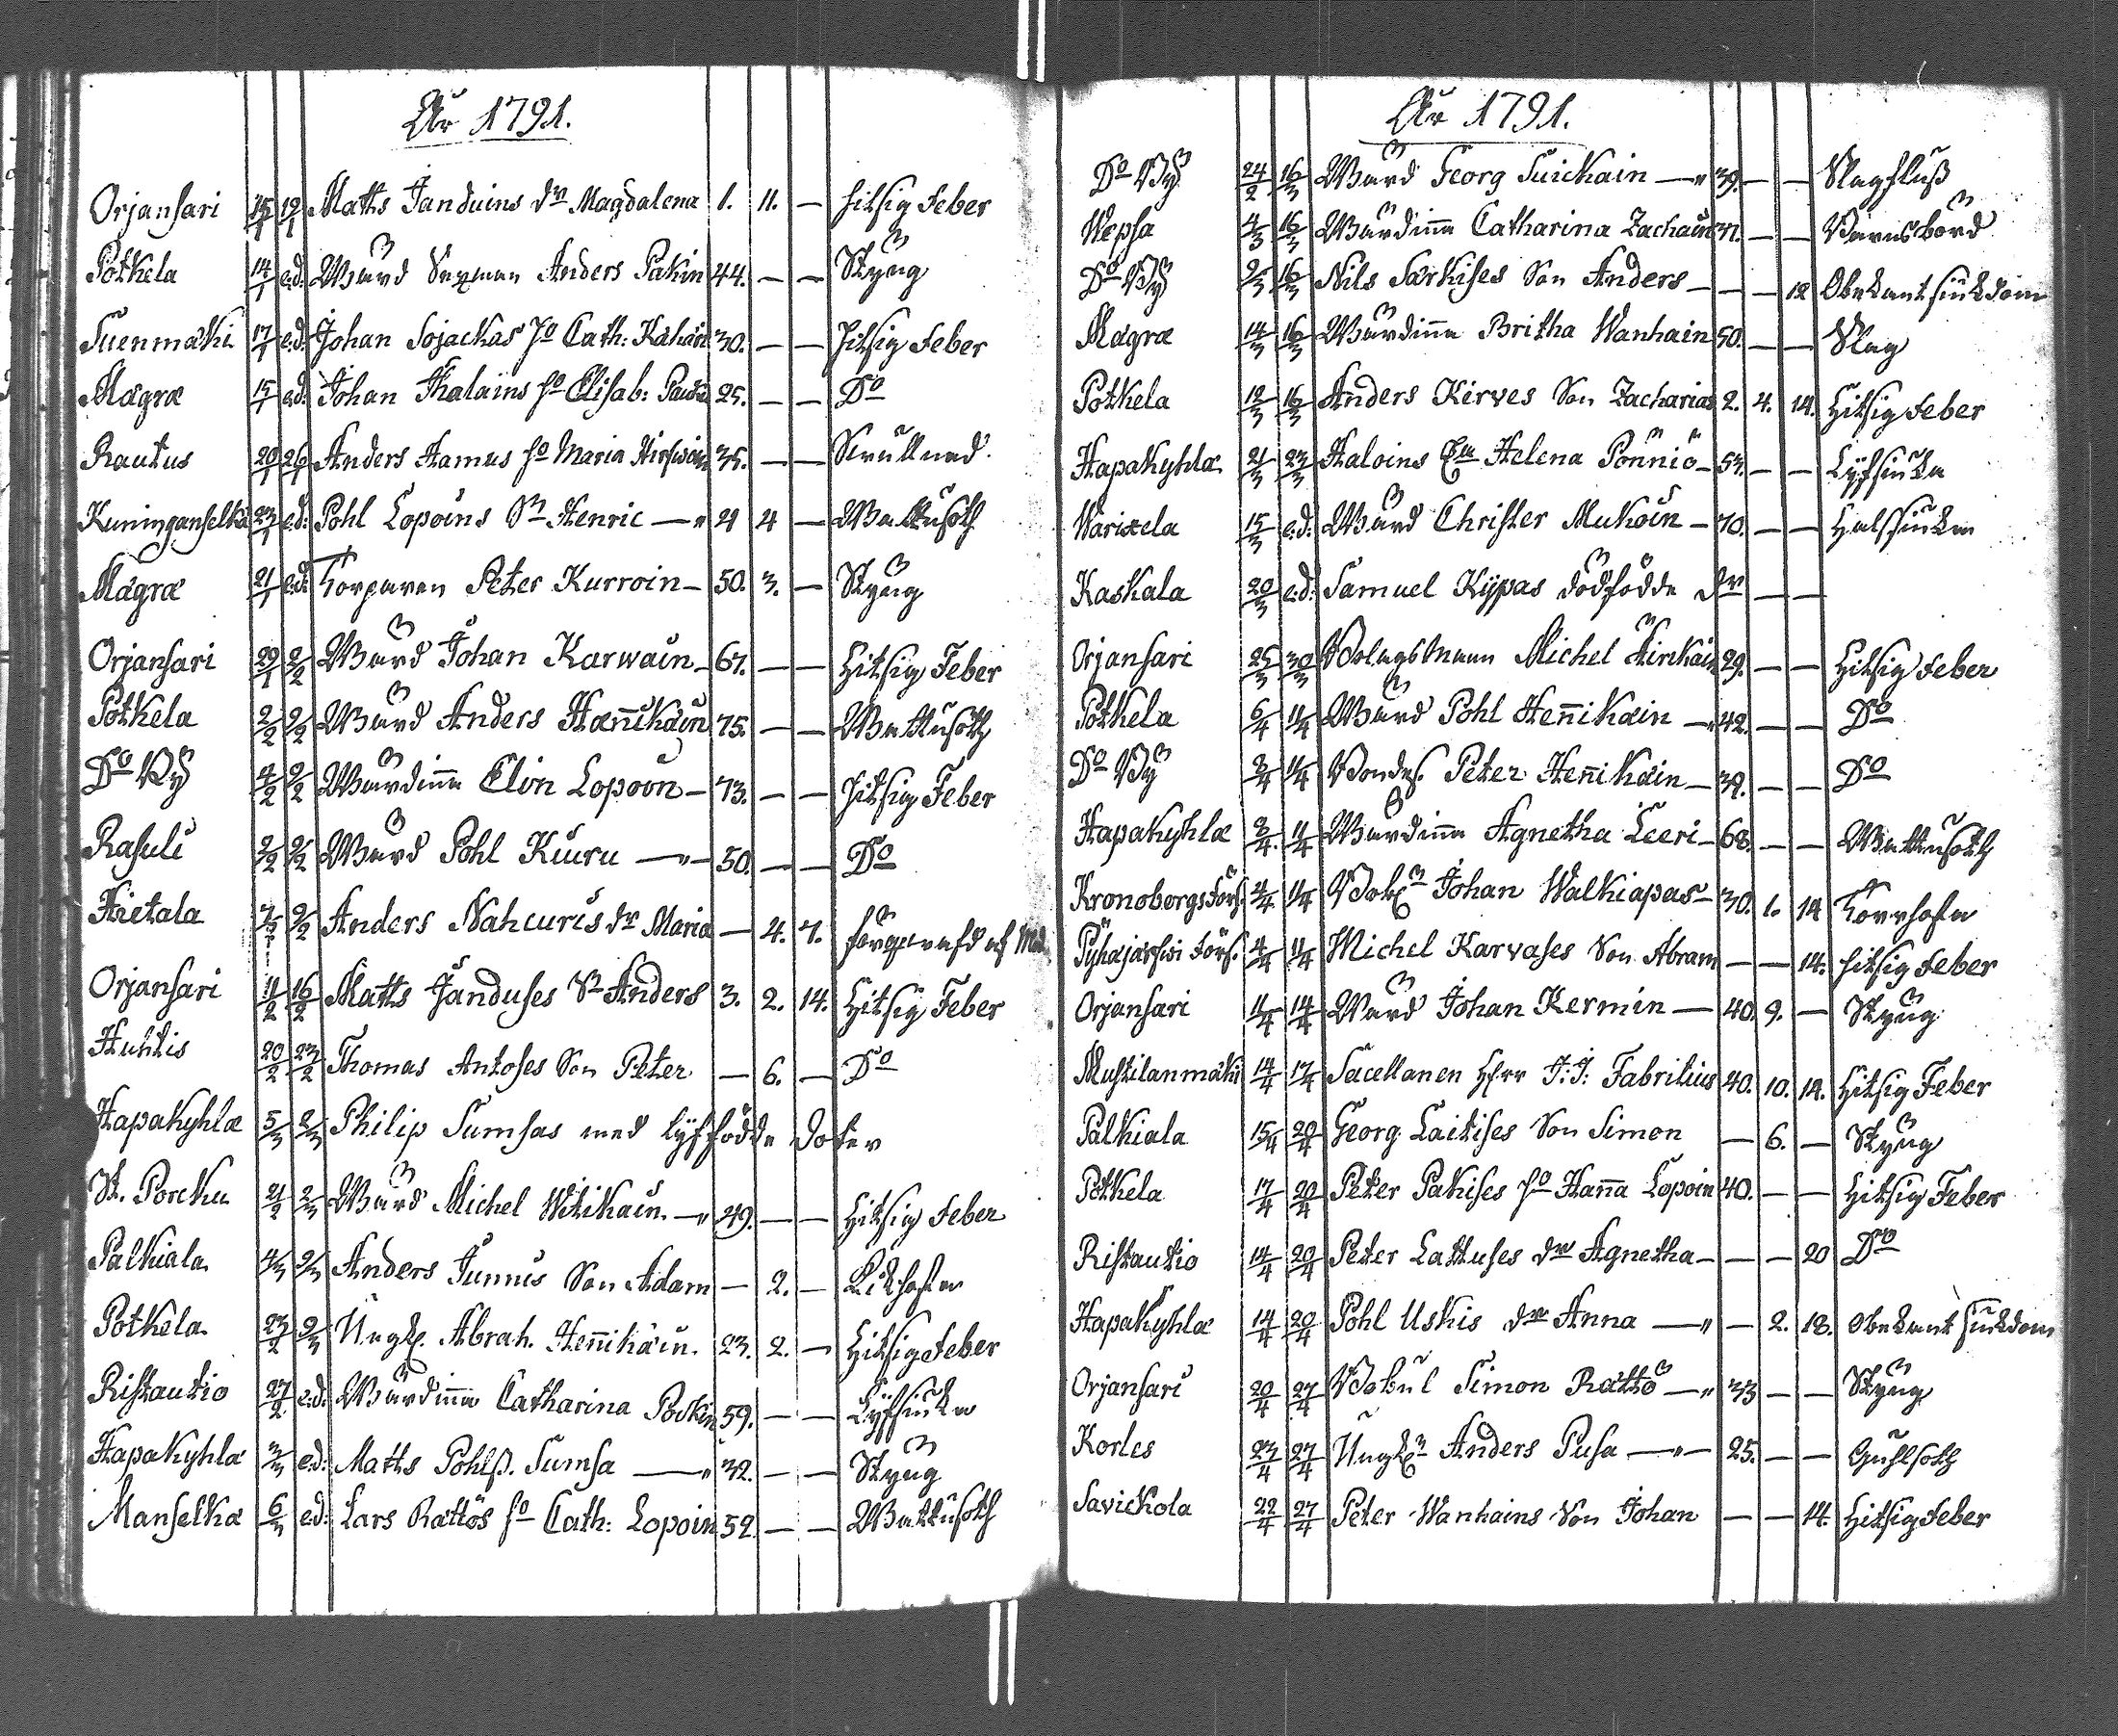 År 1791.
Orjansari 15/1 19/1 Matts Janduins dr Magdalena 1. 11. — hitsig feber
Potkela 14/1 e.d. Wärd Sexman Anders Pakin 44. — — Styng
Suenmäki 17/1 e.d. Johan Sojackas ho Cath: Kähäri 30. — — hitsig feber
Mägræ 15/1 e.d. Johan Thalains ho Elisab: 25. — — Do
Rautus 20/1 26/1 Anders Hamus ho Maria 35. — —
Kuninganselkä 23/1 e.d. Pohl Lopoins Sn Henric — 21 4 — Wattusoth
Mägræ 21/1 e.d. Torparen Peter Kurroin — 50. 3. — Styng
Orjansari 29/1 9/2 Wärd Johan Karwain — 67. — — hitsig Feber
Potkela 2/2 9/2 Wärd Anders Hæñikäin 75. — — Wattusoth
Do By 4/2 9/2 Wärdiña Elin Lopoin — 73. — — hitsig Feber
Rasuli 2/2 9/2 Wärd Pohl Kiuru — 50. — — Do
Hietala 9/2 Anders Nahcuris dr Maria — 4. 7. förqvafd af Mod
Orjansari 11/2 16/2 Matts Janduses Sn Anders 3. 2. 14. hitsig Feber
Huhtis 20/2 23/2 Thomas Antoses Son Peter — 6. — Do
Hapakyhlæ 5/3 2/3 Philip Sumsas med lyffödde doter
St. Porcku 21/2 2/3 Wärd Michel Witikain — 49. — — hitsig feber
Palkiala 4/3 9/3 Anders Junnis Son Adam — 2. — Kikhosta
Potkela 23/2 9/3 Ungk. Abrah. Heñikäin. 23. 2. — hitsig feber
Ristautio 27/2 e.d. Wärdiña Catharina Potkin 59. — — Lyfsiuka
Hapakyhlæ 3/3 e.d. Matts Pohlss. Sumsa — 32. — — Styng
Manselkæ 6/3 e.d. Lars Rættös ho Cath: Lopoin 52 — — Wattusoth
År 1791.
Do By 24/2 16/3 Wärd Georg Suickain — 39. — — Slagfluss
Wepsa 4/3 16/3 Wärdiña Catharina Zachäus 37. — — Barnsbörd
Do By 9/3 16/3 Nils Särkises Son Anders — — — 12 Obekant siukdom
Mägræ 14/3 16/3 Wärdiña Britha Wanhain 50. — — Slag
Potkela 12/3 16/3 Anders Kirves Son Zacharias 2. 4. 14. hitsig feber
Hapakyhlæ 21/3 23/3 Haloins Ea Helena Pönniö — 53. — — Lyfsiuka
Warixela 15/3 e.d. Wärd Christer Mukoin — 70. — — halssiuka
Kaskala 20/3 e.d. Samuel Kypas dödfödde dr — —
Orjansari 25/3 30/3 Bolagsmann Michel Hirckäin 29. — — hitsig feber
Potkela 6/4 11/4 Wärd Pohl Heñikäin — 42. — — Do
Do By 8/4 11/4 Bondes. Peter Heñikäin — 39. — — Do
Hapakyhlæ 8/4 11/4 Wärdiña Agnetha Leeri — 68. — — Wattusoth
Kronoborgs Förs. 4/4 11/4 Johan Walkiapas — 30. 1. 14 Torrhosta
Pyhäjärfwi Förs. 4/4 11/4 Michel Karvases Son Abram — — 14. hitsig feber
Orjansari 11/4 14/4 Wärd Johan Kermin — 40. 9. — Styng
Mustilanmäki 14/4 17/4 Sacellanen Herr J: J: Fabritius 40. 10. 14. hitsig Feber
Palkiala 15/4 20/4 Georg Laitises Son Simon — 6. — Styng
Potkela 17/4 20/4 Peter Pakises ho Hañna Lopoin 40. — — hitsig Feber
Ristautio 14/4 20/4 Peter Lattuses dr Agnetha — — — 20 Do
Hapakyhlæ 14/4 20/4 Pohl Uskis dr Anna — — 2. 18. Obekant siukdom
Orjansari 20/4 27/4 Simon Rättö — 33 — — Styng
Korles 23/4 27/4 Ungk. Anders Pusa — 25. — — Guhlsoth
Savickola 22/4 27/4 Peter Wanhains Son Johan — — 14. hitsig feber